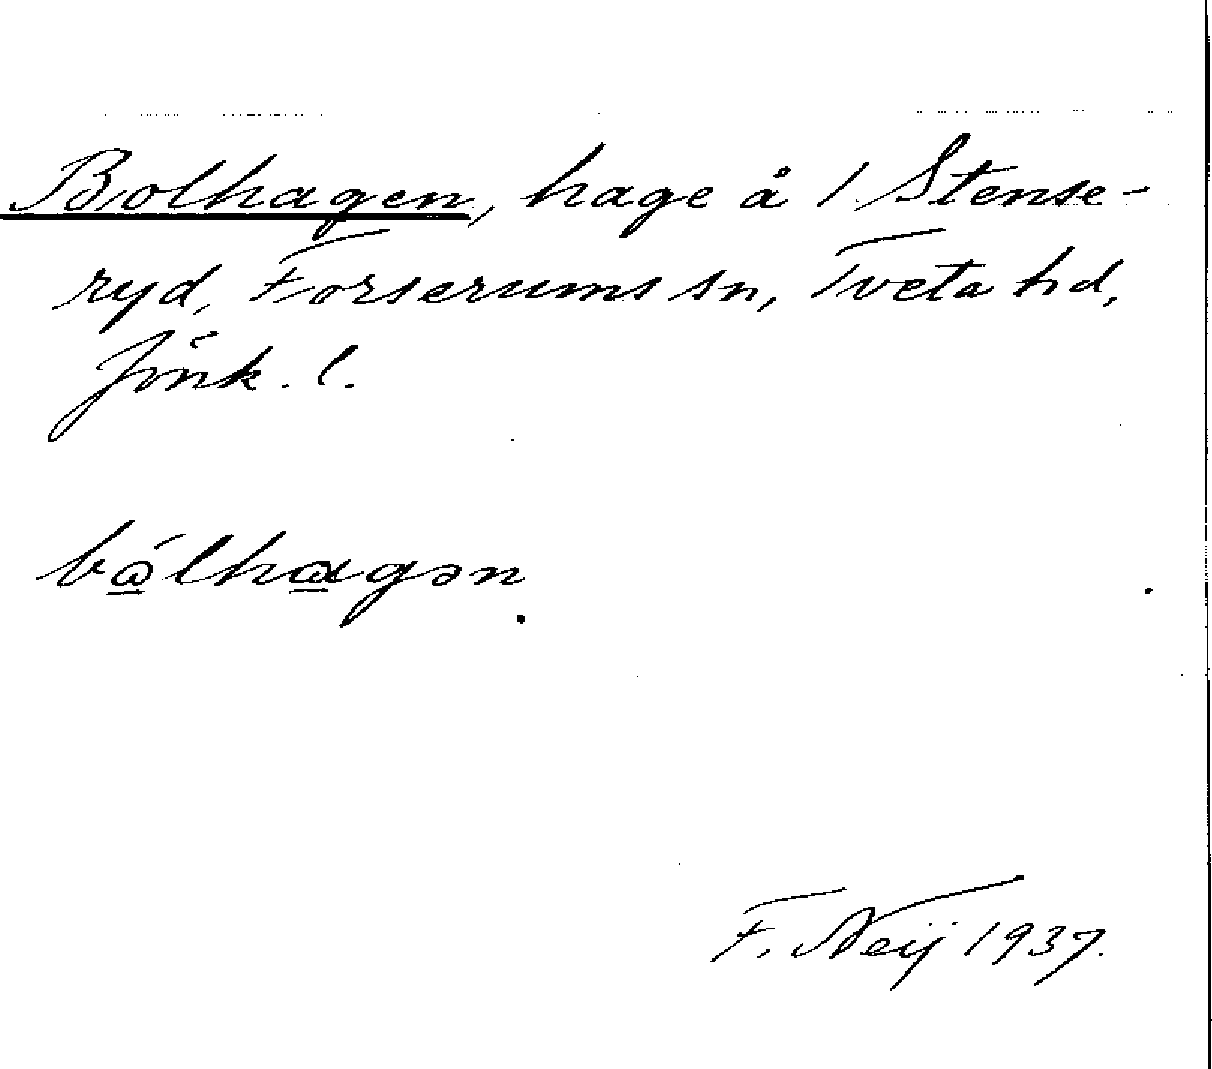 Bolhagen, hage å 1 Stense-
ryd, Forserums sn, Tveta hd,
Jönk. l.
bώ̲lhɑ̲gən
F. Neij 1937.